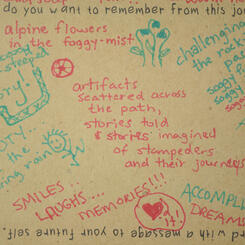 do you want to remember from this jou
alpine flowers
in the foggy mist
challenging
the rock
soggy
soggy
soggy
artifacts
scattered across
the path,
stories told
& stories imagined
of stampeders
and their journeys
ory!
ory...
the
ring rain
SMILES
LAUGHS...
MEMORIES!!!
ACCOMPL
DREAM
rd with a message to your future self.